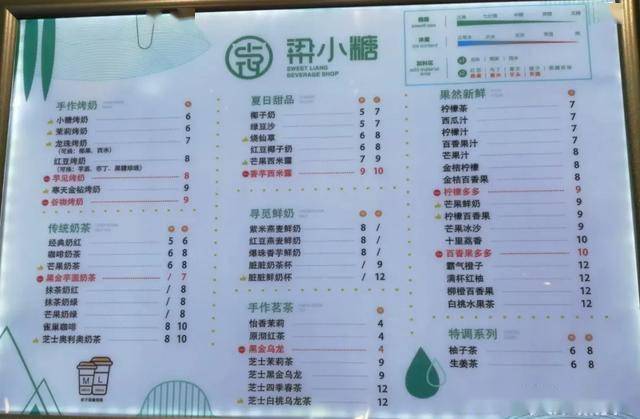 梁小糖
SWEET LIANG
BEVERAGE SHOP
手作烤奶
小糖烤奶 6
茉莉烤奶 6
龙珠烤奶 7
红豆烤奶 8
芋见烤奶 8
寒天金钻烤奶 9
谷物烤奶 9
传统奶茶
经典奶红 5 6
咖啡奶茶 6 8
芒果奶茶 6 8
黑金芋圆奶茶 / 7
抹茶奶红 / 8
抹茶奶绿 / 8
芒果奶绿 / 8
雀巢咖啡 8 10
芝士奥利奥奶茶 8 10
M L
夏日甜品
椰子奶 5 7
绿豆沙 5 7
烧仙草 6 8
红豆椰子奶 6 8
芒果西米露 7 9
香芋西米露 9 10
寻觅鲜奶
紫米燕麦鲜奶 8 /
红豆燕麦鲜奶 8 /
爆珠香芋鲜奶 8 /
脏脏奶茶杯 / 9
脏脏鲜奶杯 / 12
手作茗茶
怡香茉莉 4
原彻红茶 4
黑金乌龙 4
芝士茉莉茶 9
芝士黑金乌龙 9
芝士四季春茶 12
芝士白桃乌龙茶 12
果然新鲜
柠檬茶 7
西瓜汁 7
柠檬汁 7
百香果汁 7
芒果汁 8
金桔柠檬 8
金桔百香果 8
柠檬多多 9
芒果鲜奶 9
柠檬百香果 9
芒果冰沙 9
十里荔香 10
百香果多多 10
霸气橙子 12
满杯红柚 12
柳橙百香果 12
白桃水果茶 12
特调系列
柚子茶 6 8
生姜茶 6 8